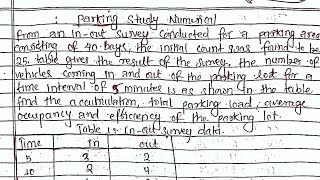 : Parking Study Numerical
from an In-out Survey conducted for a parking area
consisting of 40-bays, the initial count was found to be
25. table gives the result of the survey, the number of
vehicles coming in and out of the parking lot for a
time interval of 5 minutes is as shown in the table
find the accumulation, total parking load, average
occupancy and efficiency of the parking lot.
Table 1: in-out survey data.
Time In out
5 3 2
10 2 4